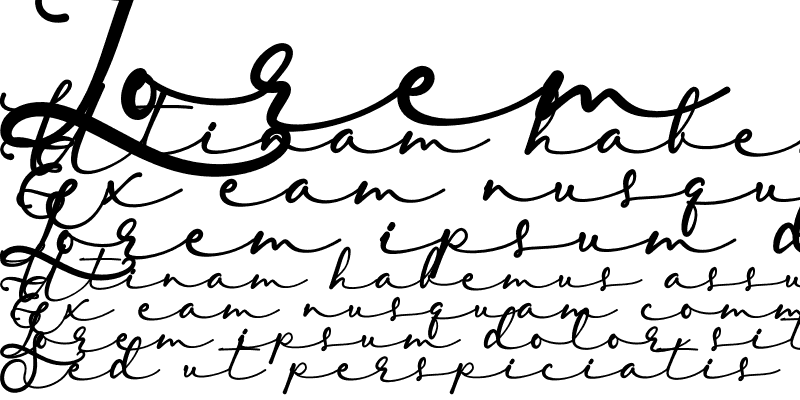 Lorem
Utinam habe
Ex eam nusqu
Lorem ipsum d
Utinam habemus assu
Ex eam nusquam comm
Lorem ipsum dolor sit
Sed ut perspiciatis